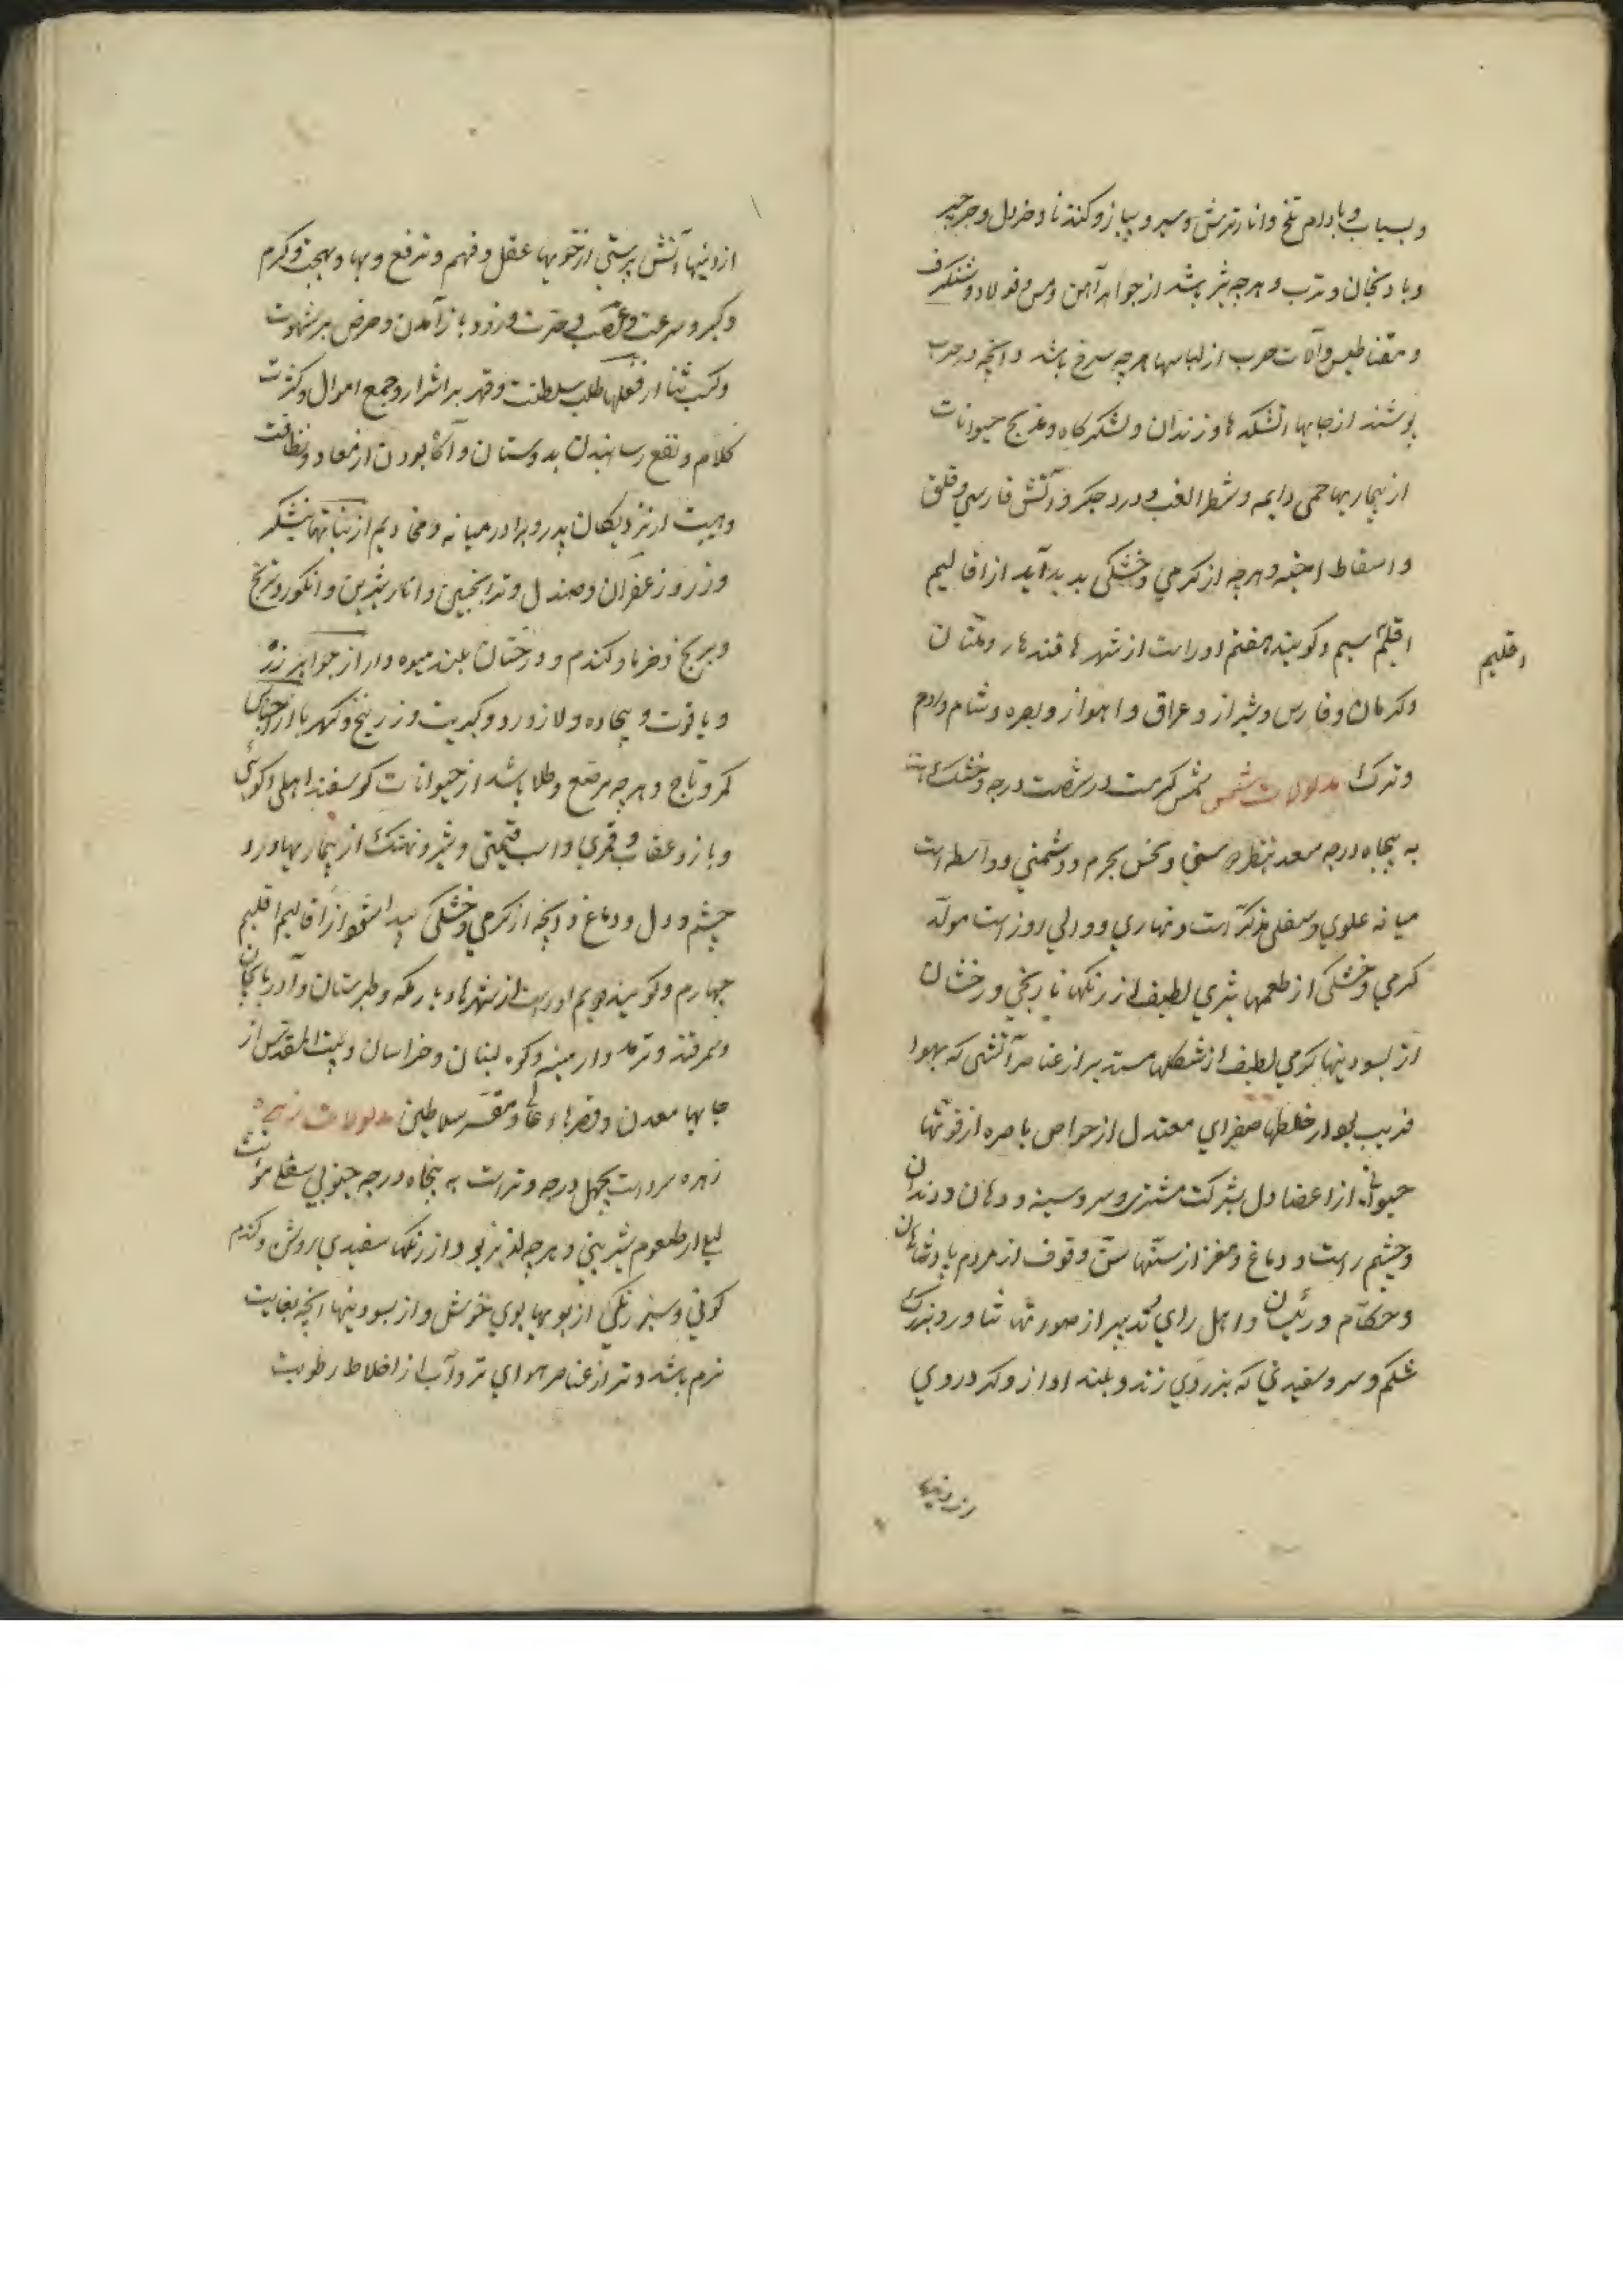 و بسباب و بادام تلخ و انار ترش و سیر و پیاز و کندنا و خردل و جرجیر
و بادنجان و ترب و هرچه تیز باشد از جواهر آهن و مس و فولاد و شنکرف
و مقناطیس و آلات حرب از لباسها هرچه سرخ باشد و آنچه در حرب
پوشند از جایها آتشکده‌ها و زندان و لشکرکاه و مذبح حیوانات
از بیماریها حمی دایمه و شطر الغب و درد جکر و آتش فارسی و قلق
و اسقاط اجنه و هرچه از کرمی و خشکی پدید آید از اقالیم
اقلیم سیم و کویند هفتم او راست از شهرها قندهار و ملتان
اقلیم
و کرمان و فارس و شیراز و عراق و اهواز و بصره و شام و روم
و ترک مدلولات شمس شمس کرمست در شصت درجه و خشک است
به پنجاه درجه سعد بنظر و نحس بجرم و دشمنی و واسطه است
میانه علوی و سفلی مذکر است و نهاری و والی روز است مولد
کرمی و خشکی از طعمها تیزی لطیف از رنکها نارنجی و رخشان
از بسودنیها کرمی لطیف از شکلها مستدیر از عناصر آتشی که بهوا
قریب بود از خلطها صفرای معتدل از حواس باصره از قوتها
حیوانی از اعضا دل بشرکت مشتری و سر و سینه و دهان و دندان
و چشم راست و دماغ و مغز از سنها سن وقوف از مردم پادشاهان
و حکام و رئیسان و اهل رای و تدبیر از صورتها تناور و بزرک
شکم و سر و سفیدی که بزردی زند و بلند آواز و کرد روی
از دینها
از دینها آتش پرستی از خویها عقل و فهم و ترفع و بها و بهجت و کرم
و کبر و سرعت و غضب و حدت و زود باز آمدن و حرص بر شهوت
و کسب ثنا از فعلها طلب سلطنت و قهر بر اشرار و جمع اموال و کثرت
کلام و نفع رسانیدن بدوستان و آکاه بودن از معاد و نظافت
و هیبت از نزدیکان پدر و برادر میانه و مخادیم از نباتها نیشکر
و زر و زعفران و صندل و ترانجبین و انار شیرین و انکور و ترنج
و برنج و خرما و کندم و درختان بلند میوه دار از جواهر زر
و یاقوت و بیجاده و لاژورد و کبریت و زرنیخ و کهربا از
کمر و تاج و هرچه مرصع و طلا باشد از حیوانات کوسفند اهلی و کوهی
و باز و عقاب و قمری و اسب قیمتی و شیر و نهنک از بیماریها درد
چشم و دل و دماغ و آنچه از کرمی و خشکی پیدا شود از اقالیم اقلیم
چهارم و کویند دویم او راست از شهرها دیار مکه و طبرستان و آذربایجان
و سمرقند و ترمد و ارمینیه و کوه لبنان و خراسان و بیت المقدس از
جایها معدن و قصرها عالی و مقر سلاطین مدلولات زهره
زهره سرد است بچهل درجه و تر است به پنجاه درجه جنوبی سفلی مؤنث
لیلی از طعوم شیرینی و هرچه لذیذ بود از رنک سفیدی روشن و کندم
کونی و سبز رنکی از بویها بوی خوش و از بسودنیها آنچه بغایت
نرم باشد و تر از عناصر هوای تر و آب از اخلاط رطوبت